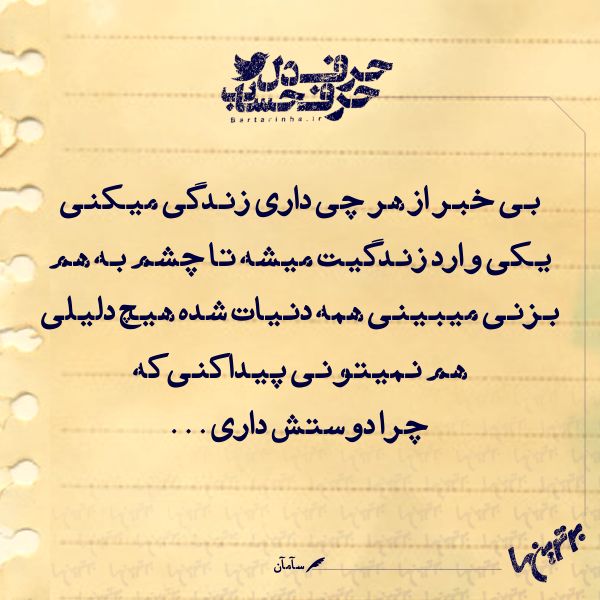 حرف دل
حرف حساب
Bartarinha.ir
بی خبر از هر چی داری زندگی میکنی
یکی وارد زندگیت میشه تا چشم به هم
بزنی میبینی همه دنیات شده هیچ دلیلی
هم نمیتونی پیدا کنی که
چرا دوستش داری...
سامان
برترین ها